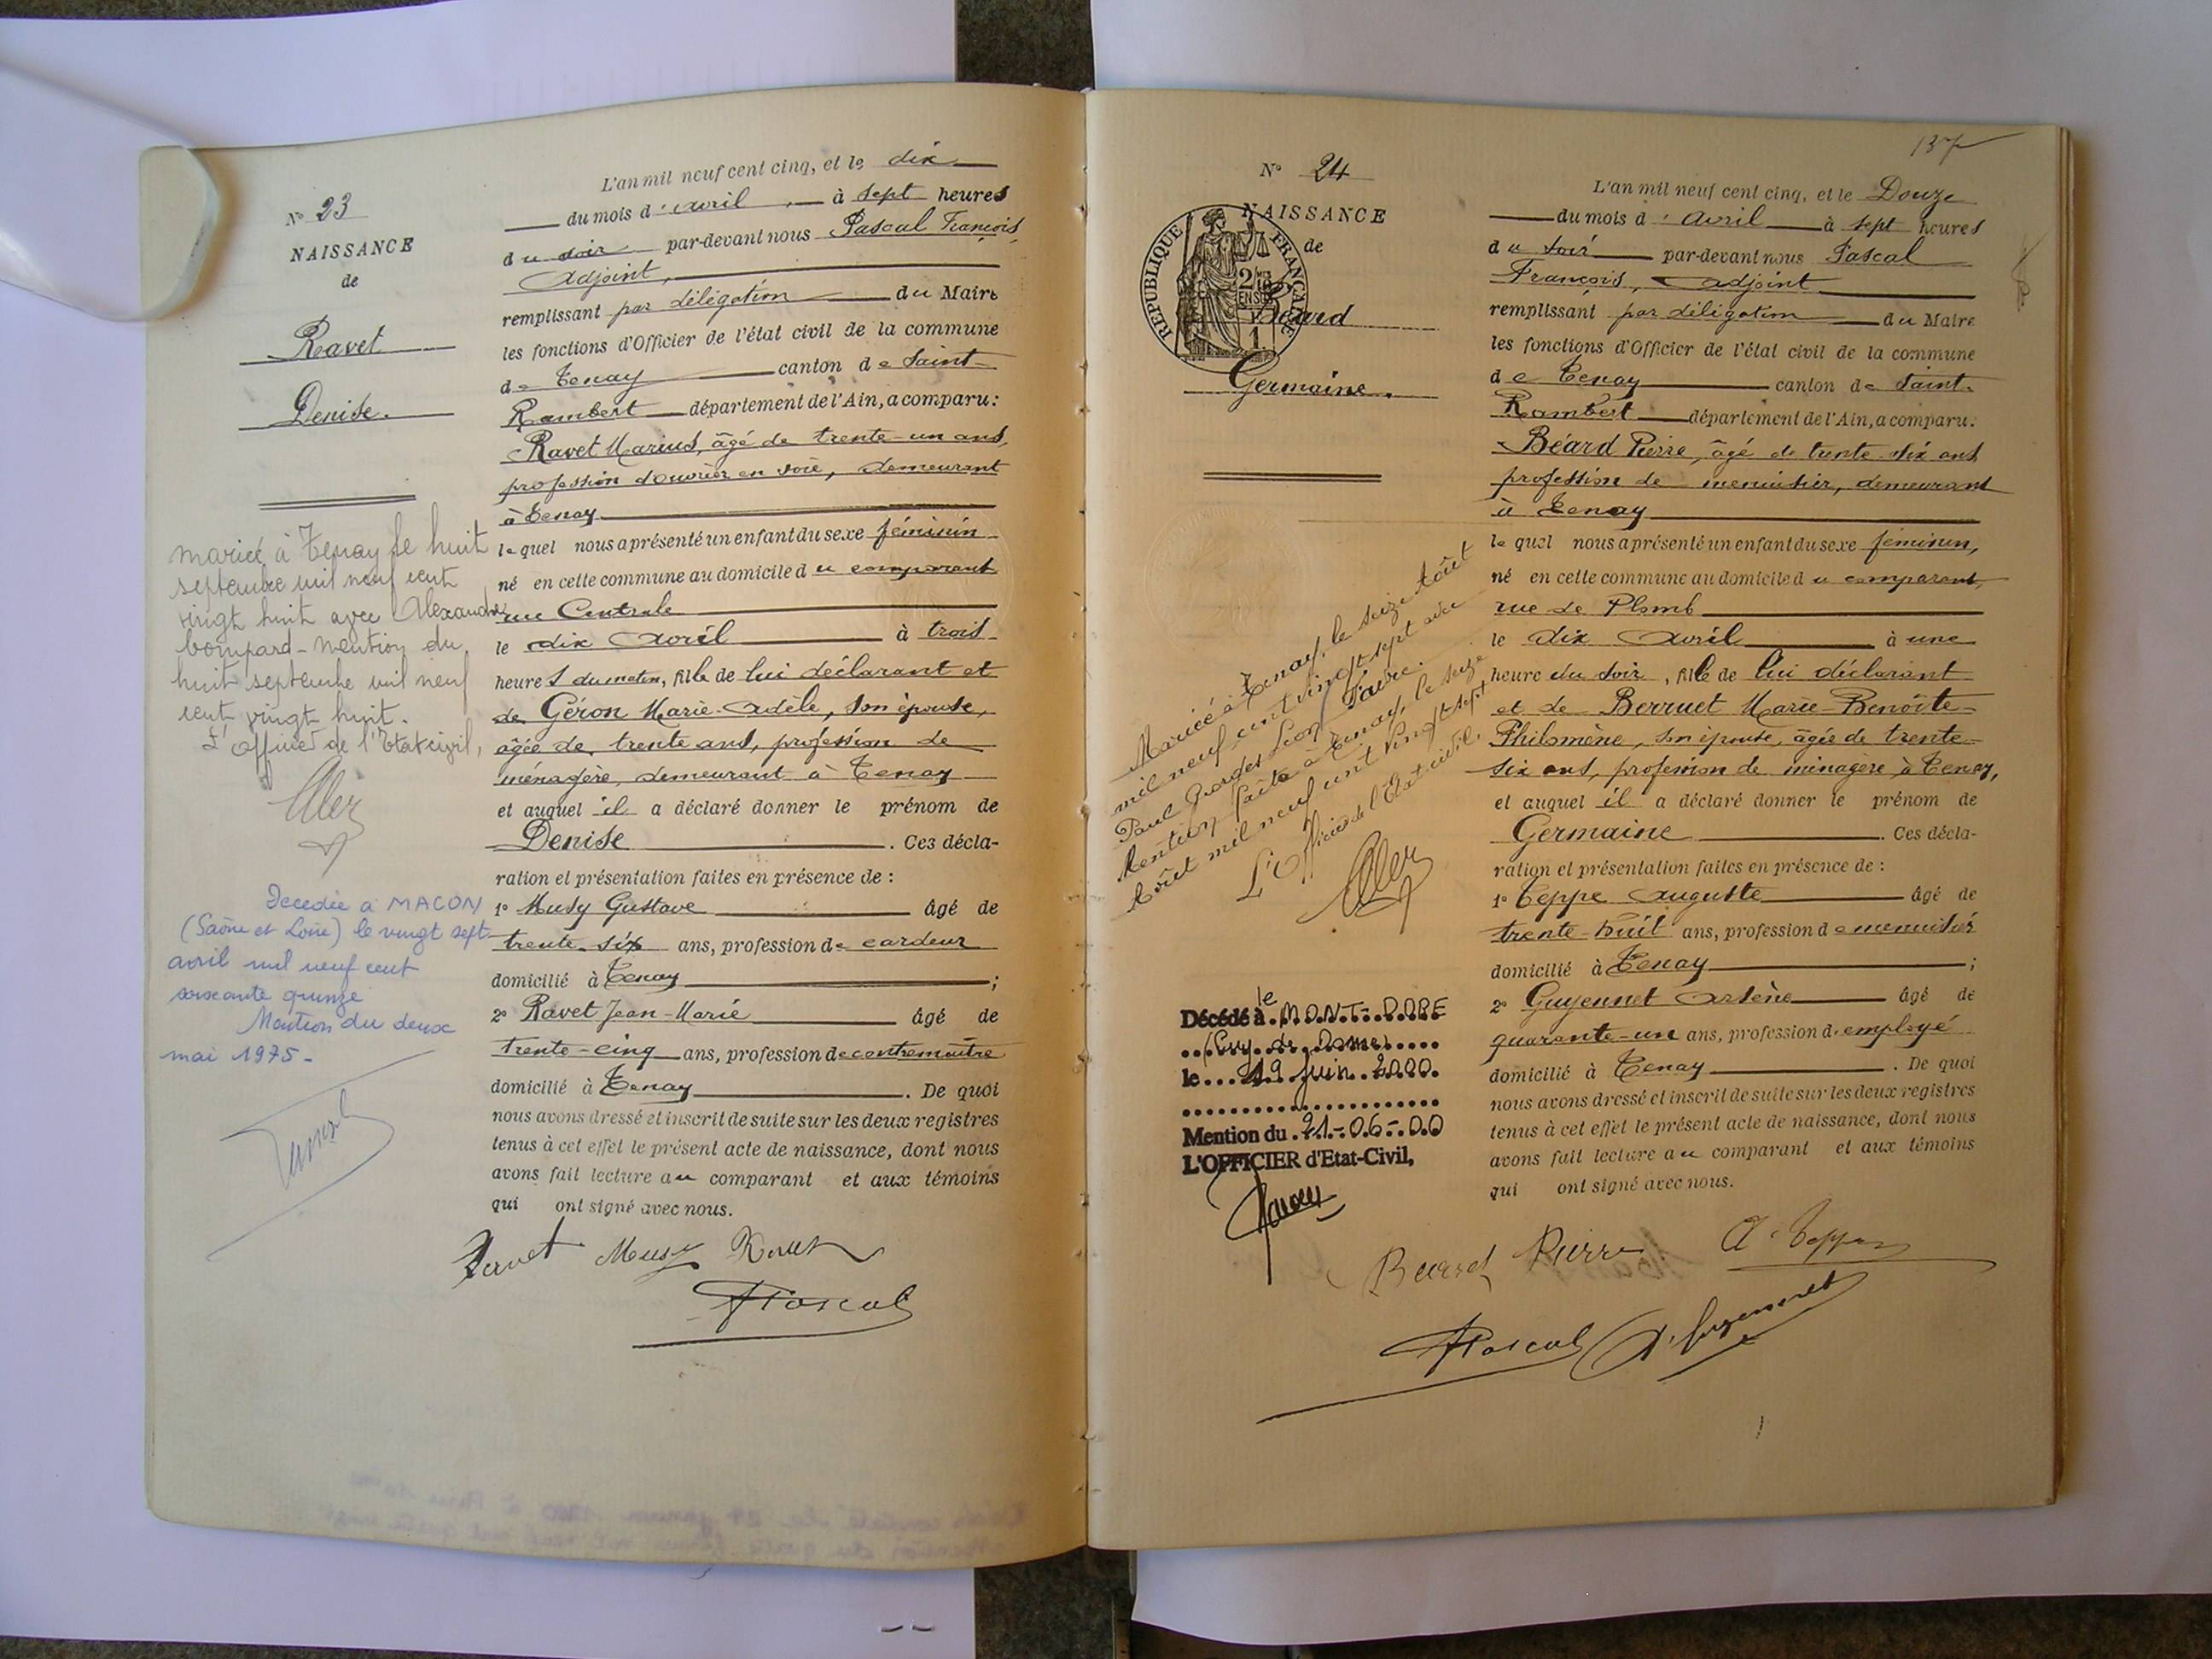 N° 23
NAISSANCE
de
Ravet
Denise.
mariée à Tenay le huit
septembre mil neuf cent
vingt huit avec Alexandre
bompard - mention du
huit septembre mil neuf
cent vingt huit.
L'officier de l'Etat civil,
Décédée à MACON
(Saône et Loire) le vingt sept
avril mil neuf cent
soixante quinze
Mention du deux
mai 1975 -
L'an mil neuf cent cinq, et le dix
du mois d'avril à sept heures
du soir par-devant nous Pascal François,
Adjoint,
remplissant par délégation du Maire
les fonctions d'Officier de l'état civil de la commune
de Tenay canton de Saint-
Rambert département de l'Ain, a comparu:
Ravet Marius, âgé de trente-un ans,
profession d'ouvrier en soie, demeurant
à Tenay
lequel nous a présenté un enfant du sexe féminin
né en cette commune au domicile du comparant
rue Centrale
le dix avril à trois
heures du matin, fille de lui déclarant et
de Géron Marie-Adèle, son épouse,
âgée de trente ans, profession de
ménagère, demeurant à Tenay
et auquel il a déclaré donner le prénom de
Denise. Ces décla-
ration et présentation faites en présence de :
1° Musy Gustave âgé de
trente-six ans, profession de cardeur
domicilié à Tenay ;
2° Ravet Jean-Marie âgé de
trente-cinq ans, profession de contremaître
domicilié à Tenay. De quoi
nous avons dressé et inscrit de suite sur les deux registres
tenus à cet effet le présent acte de naissance, dont nous
avons fait lecture au comparant et aux témoins
qui ont signé avec nous.
Ravet Musy Ravet
Pascal
137
N° 24
NAISSANCE
de
RÉPUBLIQUE FRANÇAISE
Béard
Germaine.
Mariée à Tenay, le seize Août
mil neuf cent vingt sept avec
Paul Georges Léon Favre.
Mention faite à Tenay, le seize
Août mil neuf cent vingt sept
L'Officier de l'Etat civil.
Décédé à le MONT-DORE
(Puy de Dome)
le 19 juin 2000.
Mention du 21-06-00
L'OFFICIER d'Etat-Civil,
L'an mil neuf cent cinq, et le Douze
du mois d'avril à sept heures
du soir par-devant nous Pascal
François, adjoint
remplissant par délégation du Maire
les fonctions d'Officier de l'état civil de la commune
de Tenay canton de Saint-
Rambert département de l'Ain, a comparu:
Béard Pierre, âgé de trente-six ans
profession de menuisier, demeurant
à Tenay
lequel nous a présenté un enfant du sexe féminin,
né en cette commune au domicile du comparant,
rue de Plomb
le dix avril à une
heure du soir, fille de lui déclarant
et de Berruet Marie-Benoîte-
Philomène, son épouse, âgée de trente-
six ans, profession de ménagère à Tenay,
et auquel il a déclaré donner le prénom de
Germaine. Ces décla-
ration et présentation faites en présence de :
1° Teppe Auguste âgé de
trente-huit ans, profession de menuisier
domicilié à Tenay ;
2° Guyennet Arsène âgé de
quarante-un ans, profession d'employé
domicilié à Tenay. De quoi
nous avons dressé et inscrit de suite sur les deux registres
tenus à cet effet le présent acte de naissance, dont nous
avons fait lecture au comparant et aux témoins
qui ont signé avec nous.
Pierre A Teppe
Pascal A Guyennet